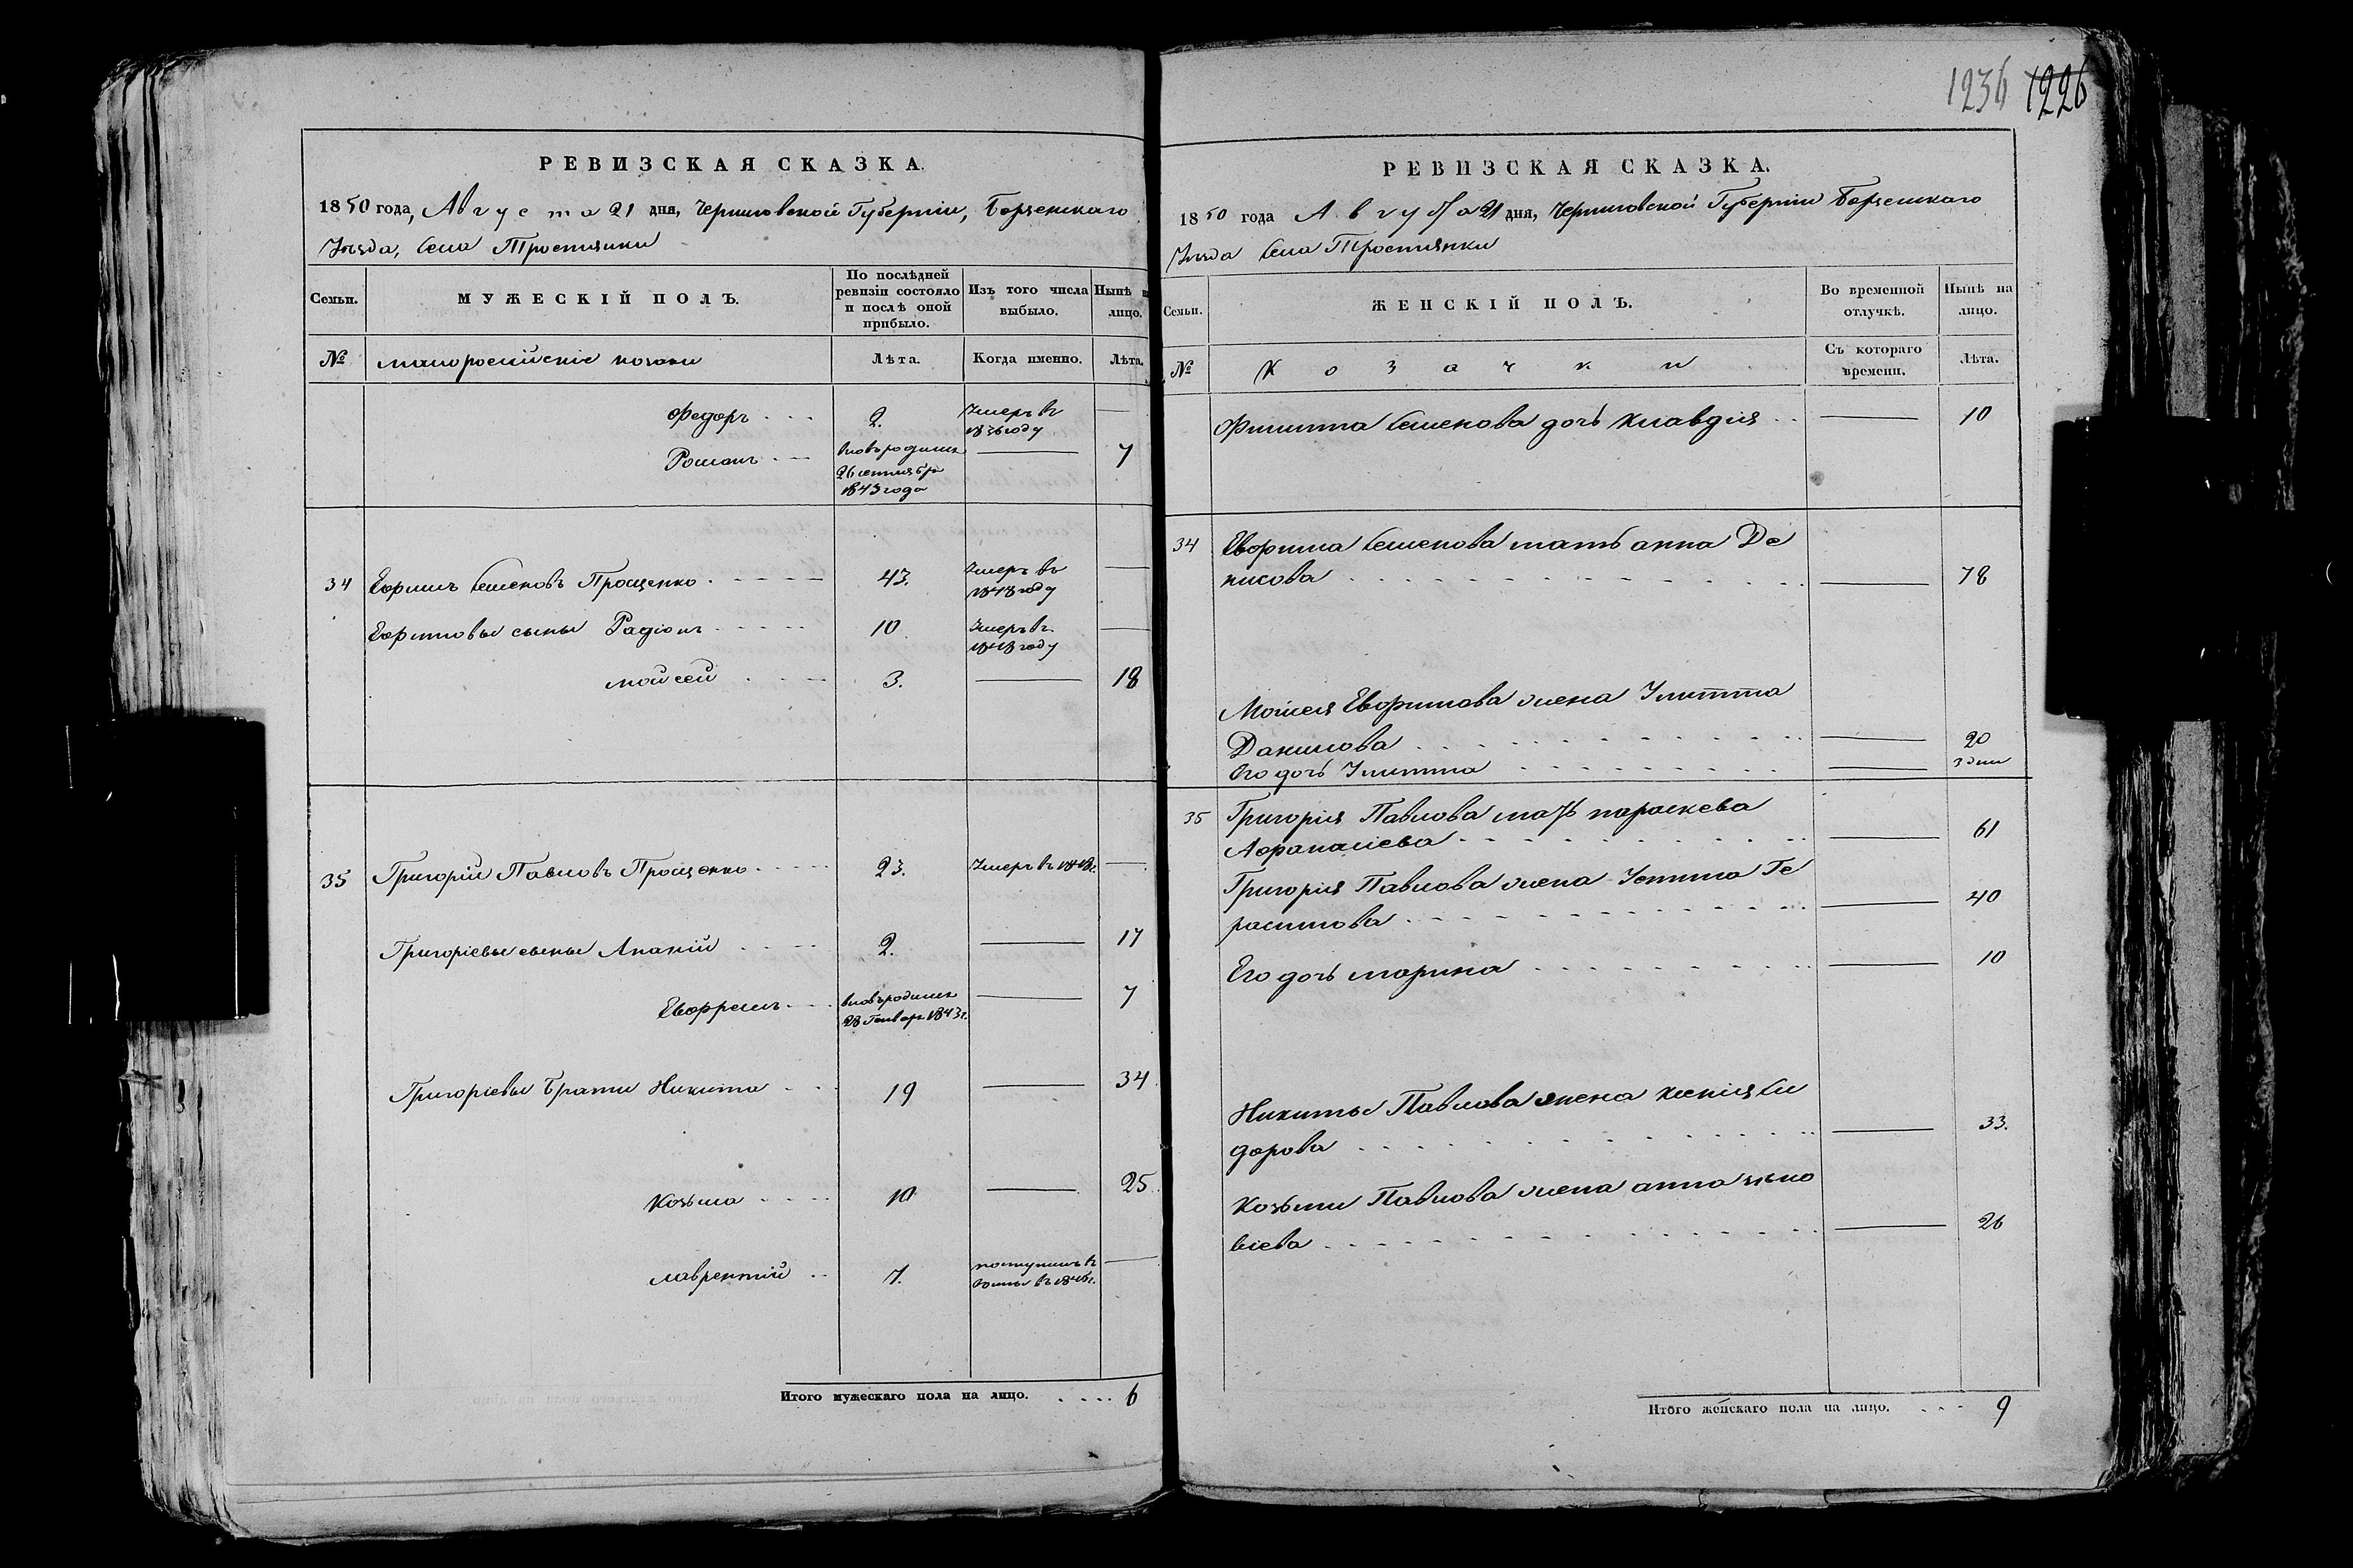 1236 1226
РЕВИЗСКАЯ СКАЗКА.
1850 года, Августа 21 дня, Черниговской Губерніи, Борзенскаго
Уѣзда, Села Тростянки
Семьи.
МУЖЕСКІЙ ПОЛЪ.
По послѣдней
ревизіи состояло
и послѣ оной
прибыло.
Изъ того числа
выбыло.
Нынѣ н
лицо.
№
малороссійскіе козаки
Лѣта.
Когда именно.
Лѣта.
Федоръ 2. Умеръ въ
1836 году
Романъ вновьродился 7
26 сентября
1843 года
34 Ефимъ Семеновъ Прощенко 43. Умеръ въ
1848 году
Ефимовы сыны Радіонъ 10 Умеръ въ
1848 году
мойсей 3. 18
35 Григорій Павловъ Прощенко 23. Умеръ въ 1848г.
Григоріевы сыны Ананій 2. 17
Евфремъ вновьродился 7
28 Генваря 1843г.
Григоріевы братя Никита 19 34
Козьма 10 25
лаврентій 7. поступилъ въ
1846г.
Итого мужескаго пола на лицо. 6
РЕВИЗСКАЯ СКАЗКА.
1850 года Августа 21 дня, Черниговской Губерніи Борзенскаго
Уѣзда Села Тростянки
Семьи.
ЖЕНСКІЙ ПОЛЪ.
Во временной
отлучкѣ.
Нынѣ на
лицо.
№
Козачки
Съ котораго
времени.
Лѣта.
Филиппа Семенова дочь Клавдія 10
34 Евфима Семенова мать анна Де
нисова 78
Мойсея Евфимова жена Улитта
Данилова 20
Его дочь Улитта 3 дни
35 Григорія Павлова мать параскева
Афанасіева 61
Григорія Павлова жена Устина Ге
расимова 40
Его дочь марина 10
Никиты Павлова жена ксенія Си
дорова 33.
Козьми Павлова жена анна зѣно
віева 26
Итого женскаго пола на лицо. 9